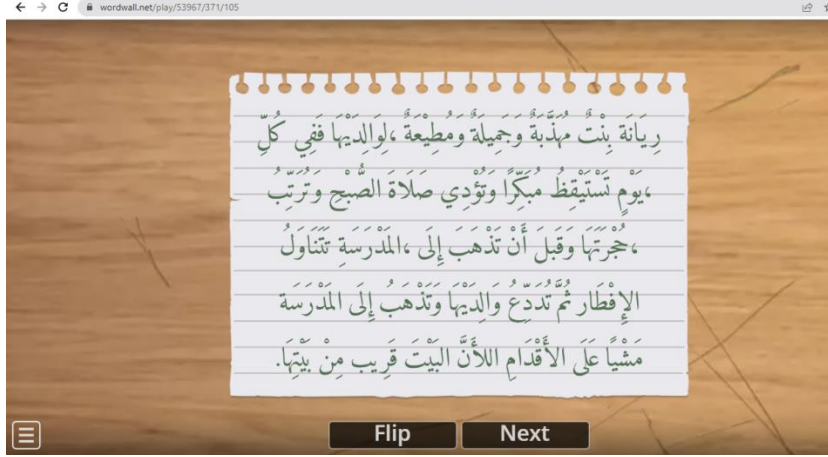 wordwall.net/play/53967/371/105
رِيَانَة بِنْتٌ مُهَذَّبَةٌ وَجَمِيلَةٌ وَمُطِيْعَةٌ ،لِوَالِدَيْهَا فَفِي كُلِّ
،يَوْمٍ تَسْتَيْقِظُ مُبَكِّرًا وَتُؤْدِي صَلَاةَ الصُّبْحِ وَتُرَتِّبُ
،حُجْرَتَهَا وقَبلَ أَنْ تَذْهَبَ إِلَى ،المَدْرَسَةِ تَتَنَاوَلُ
الإِفْطَار ثُمَّ تُدَدِّعُ وَالِدَيْهَا وَتَذْهَبُ إِلَى المَدْرَسَة
مَشْيًا عَلَى الأَقْدَامِ اللأَنَّ البَيْتَ قَرِيب مِنْ بَيْتِهَا.
Flip
Next